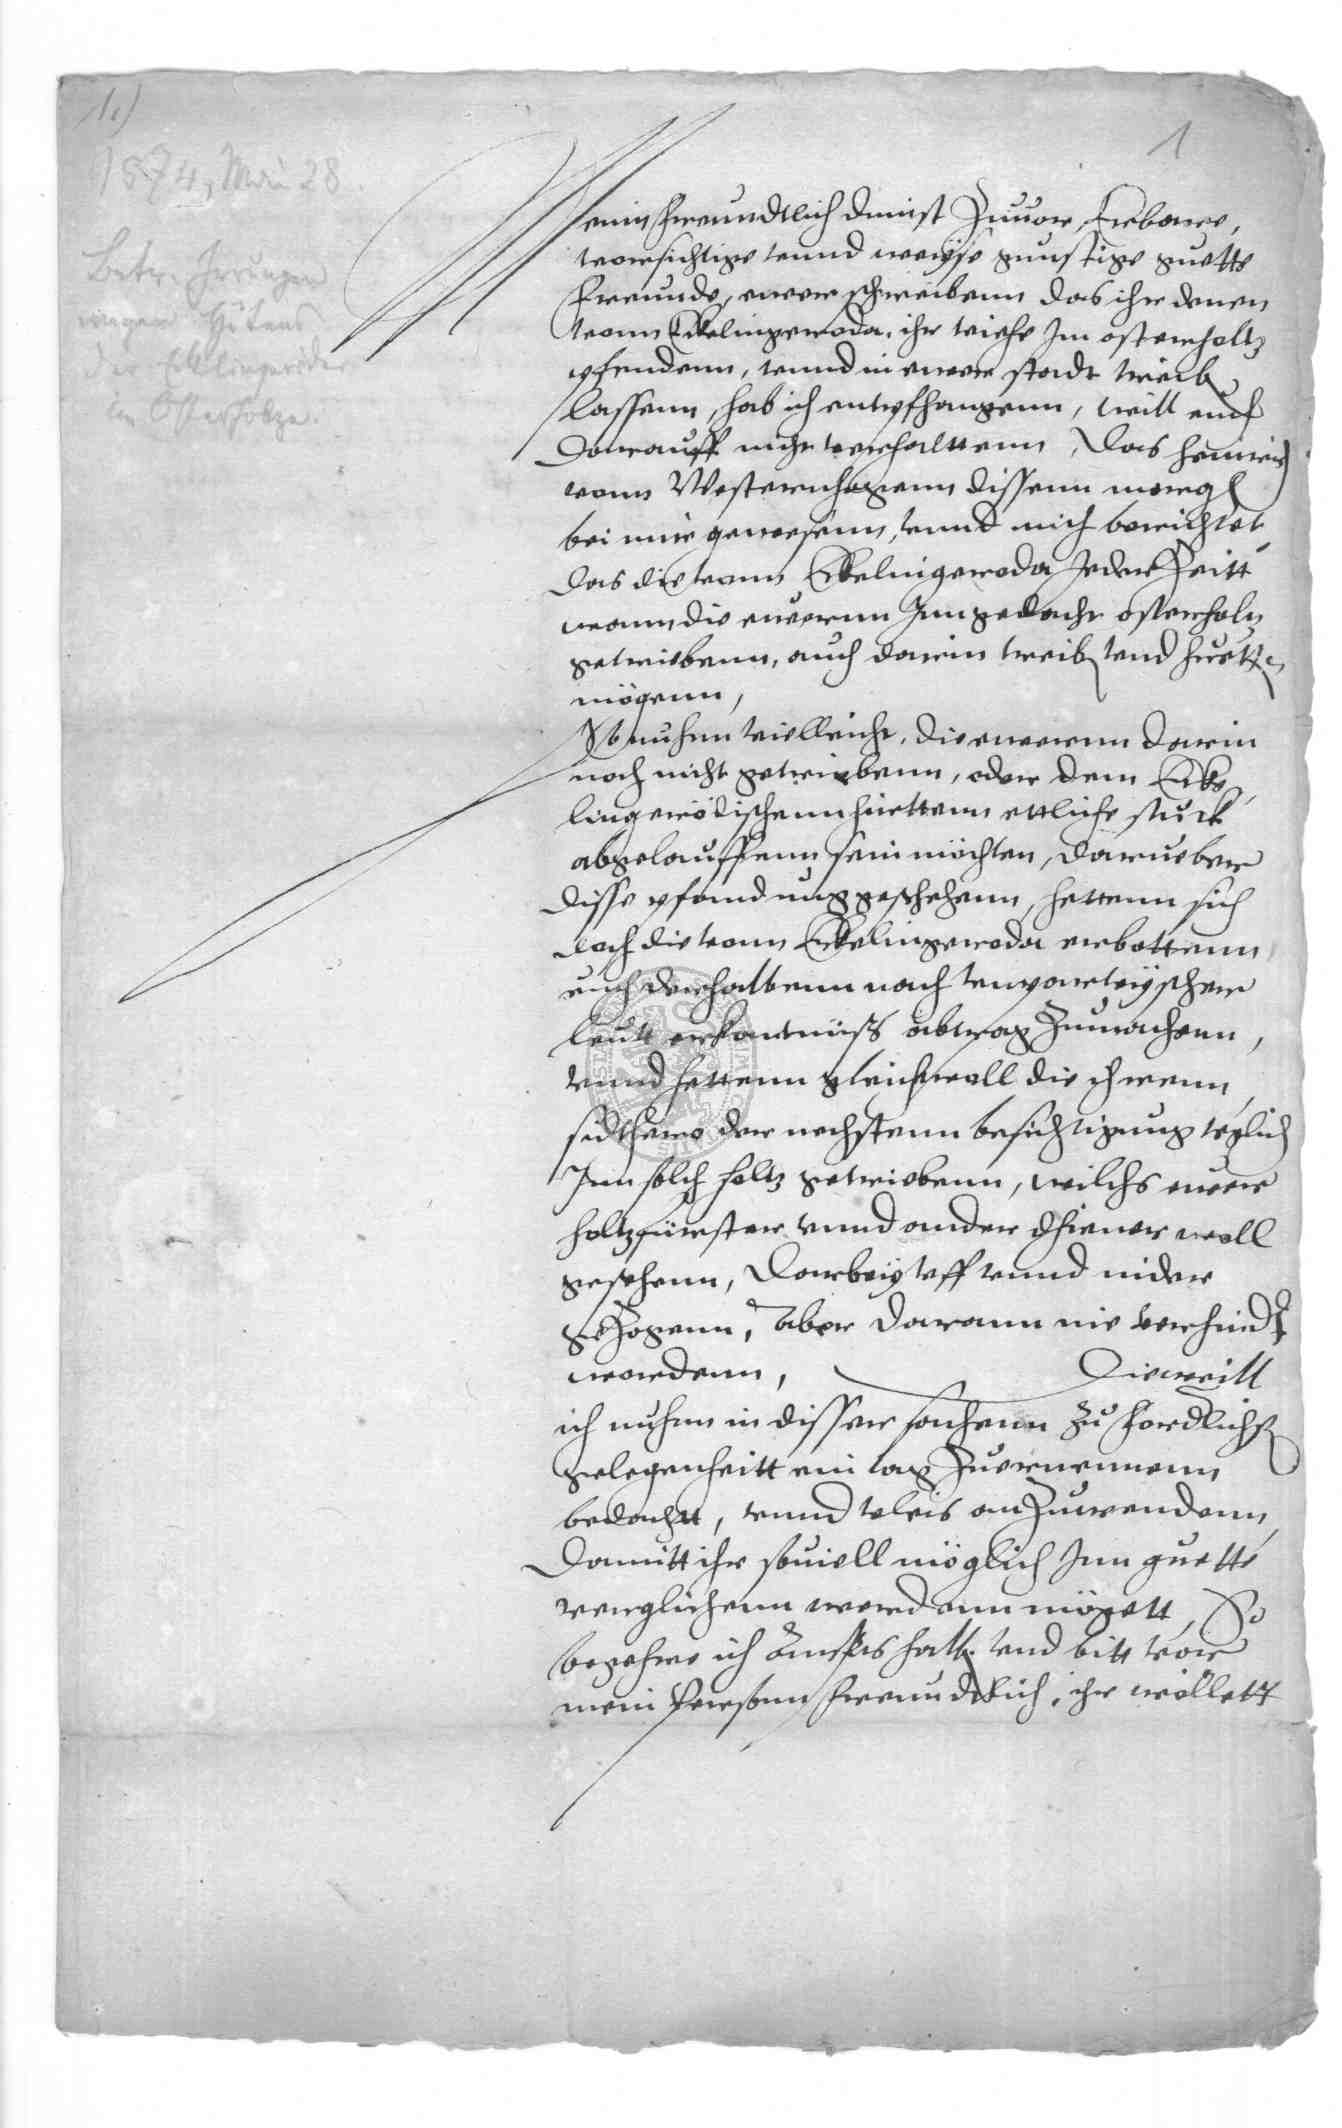 1.)
1
1574, Mai 28.
Betr. Irrungen
wegen Hütens
der Ecklingeröder
im Osterholze.
Mein freundtlich dinst Zuuor, Erbare,
vorsichtige vnnd weyse gunstige guette
freunde, ewer schreibenn das ihr denen
vonn Eckelingeroda, ihr viehe Im osterholtz
pfendenn, vnnd in ewer stadt treib
lassenn, hab ich entpfhangenn, will euch
darauff nicht verhalttenn, Das Heinrich
vonn Westernhagenn dissenn morg
bei mir gewesenn, vnnd mich berichtet
das die vonn Eckelingeroda Jeder Zeitt
wann die ewernn Inn gedacht osterholtz
getriebenn, auch darin treib vnd huett
mögenn,
So nuhnn villeicht, die ewernn darin
noch nicht getriebenn, oder dem Ecke
lingerödischenn hirttenn ettliche stuck
abgelauffenn sein möchten, darueber
disse pfandung geschehenn, hettenn sich
doch die vonn Eckelingeroda erbottenn
euch derhalbenn nach vnparteyischer
leutt erkantnüß abtrag Zumachenn,
vnnd hettenn gleichwoll die ihrenn
sidthero der nechstenn besichtigung teglich
Inn solch holtz getriebenn, wilchs ewer
holtzfürster vnnd ander dhiener woll
gesehenn, darbey vff vnnd nider
geZogenn, aber darann nie verhindt
wordenn, Dieweill
ich nuhnn in disser sachenn zu fordlichst
gelegenheitt ein tag Zuernennenn
bedacht, vnnd vleis anZuwendenn,
damitt ihr souiell möglich Inn guette
verglichenn werdenn mögett, So
begehre ich Ampts halb vnd bitt vor
mein Personn freundtlich, ihr wöllett